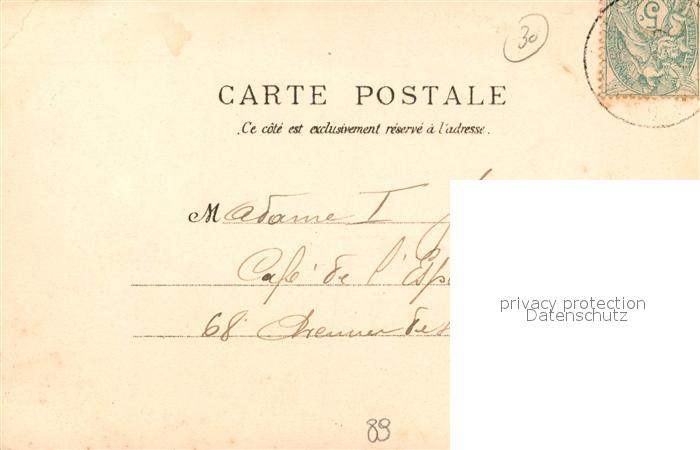 30
5
CARTE POSTALE
Ce côté est exclusivement réservé à l'adresse.
Madame I
Café de l'Esp
68 Avenue des
privacy protection
Datenschutz
89